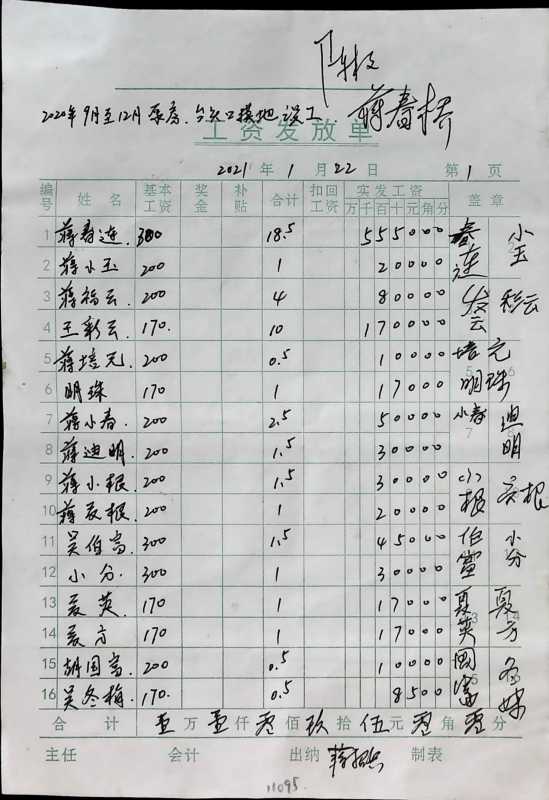 2020年9月至12月
蒋春桥
工资发放单
2021年1月22日 第1页
编号 姓名 基本工资 奖金 补贴 合计 扣回工资 实发工资 万千百十元角分 盖章
1 蒋春连 300 18.5 555000 春连 小玉
2 蒋小玉 200 1 20000
3 蒋福云 200 4 80000 发云
4 王新云 170. 10 170000
5 蒋培元 200 0.5 10000 培元
6 明珠 170 1 17000 明珠
7 蒋小春 200 2.5 50000 小春 迪明
8 蒋迪明 200 1.5 30000
9 蒋小根 200 1.5 30000 小根
10 蒋根 200 1 20000
11 吴伯富 300 1.5 45000 伯富 小分
12 小分. 300 1 30000
13 夏英 170 1 17000 夏英 夏方
14 夏方 170 1 17000
15 胡国富 200 0.5 10000 国富 冬梅
16 吴冬梅 170. 0.5 8500
合计 壹万壹仟零佰玖拾伍元零角零分
主任 会计 出纳 制表
11095.